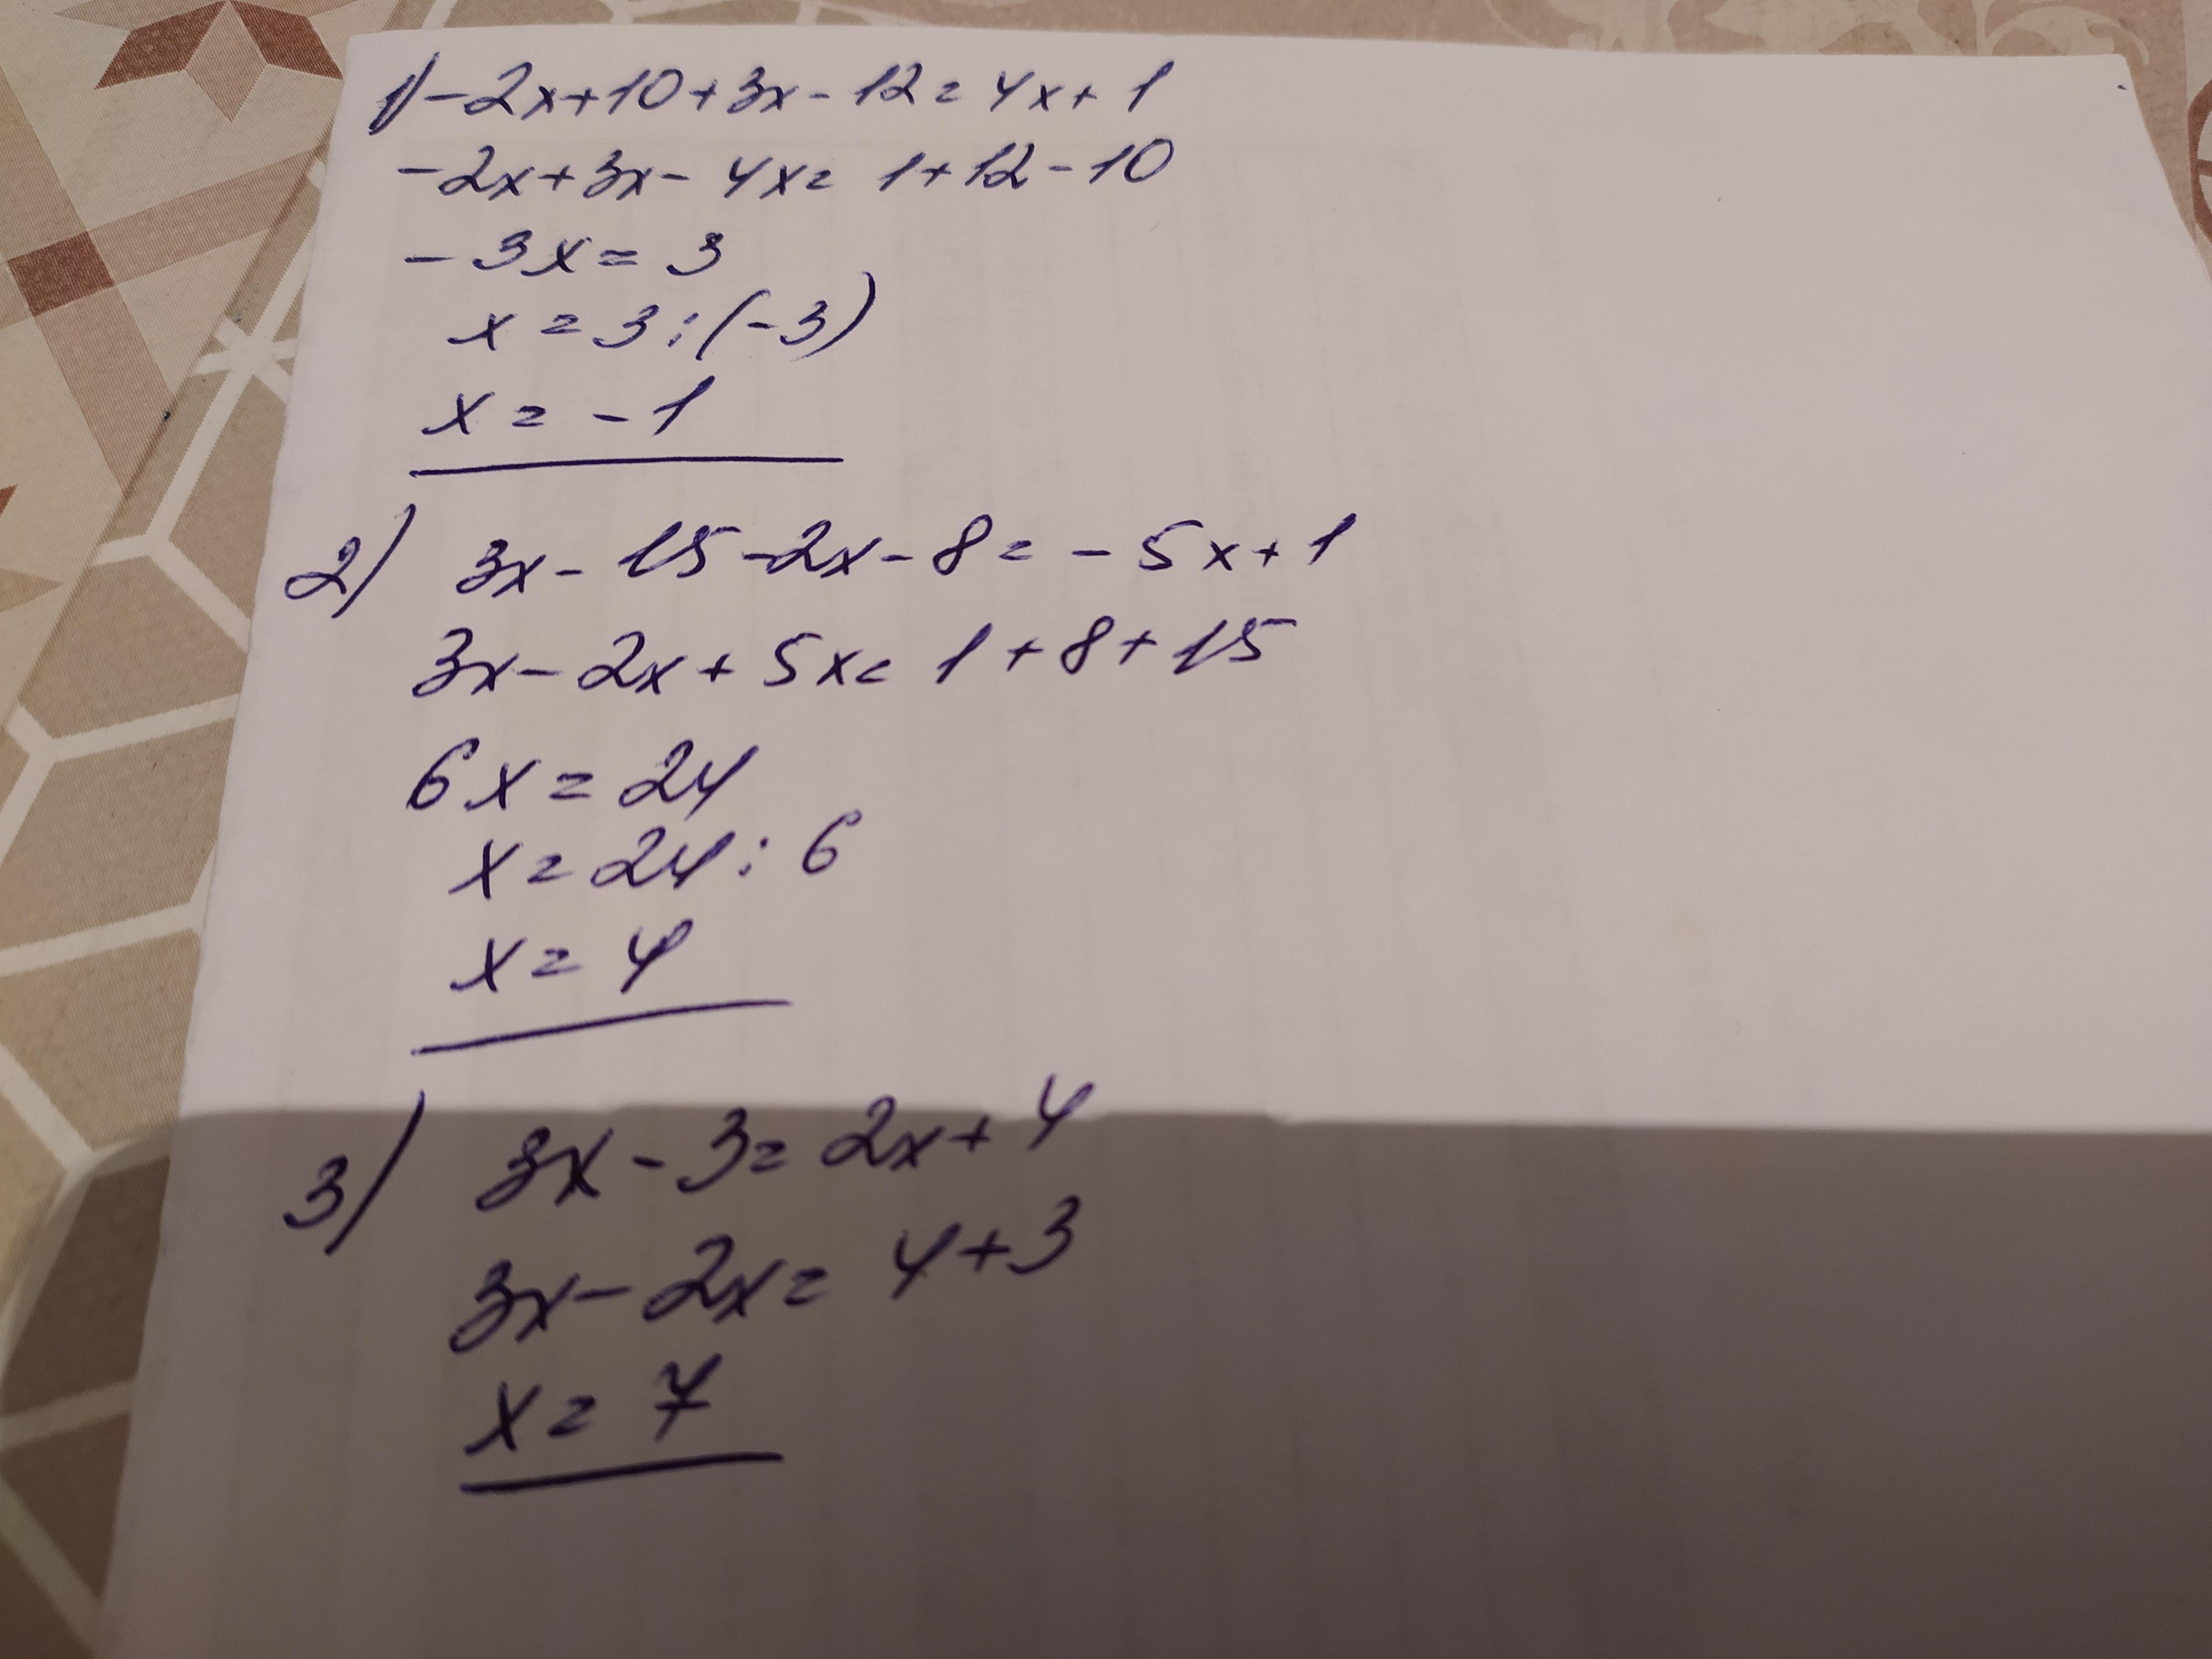 1) -2x+10+3x-12=4x+1
-2x+3x-4x=1+12-10
-3x=3
x=3:(-3)
x=-1
2) 3x-15-2x-8=-5x+1
3x-2x+5x=1+8+15
6x=24
x=24:6
x=4
3) 3x-3=2x+4
3x-2x=4+3
x=7